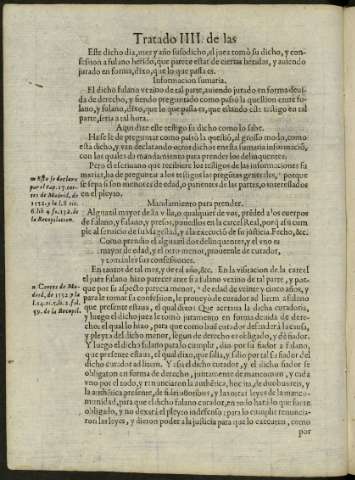 Tratado IIII. de las
Este dicho dia, mes y año susodicho, el juez tomó su dicho, y con-
fession a fulano herido, que parece estar de ciertas heridas, y auiendo
jurado en forma, dixo, que lo que passa es.
Informacion sumaria.
El dicho fulano vezino de tal parte, auiendo jurado en forma deui-
da de derecho, y siendo preguntado como passó la question entre fu-
lano, y fulano, dixo, que lo que passa es, que estando este testigo en tal
parte, seria a tal hora.
Aqui dize este testigo su dicho como lo sabe.
Ha se le de preguntar como passò la questiõ, al gnosso modo, como
esta dicho, y van declarando otros dichos en esta sumaria informaciõ,
con las quales da mandamiento para prender los delinquentes.
Pero el escriuano que recibiere los testigos de las informaciones su
marias, ha de preguntar a los testigos las preguntas generales, porque
se sepa si son menores de edad, o parientes de las partes, o interessados
en el pleyto.
Mandamiento para prender.
Alguazil mayor de la villa, o qualquier de vos, prēded a los cuerpos
de fulano, y fulano, y presos, ponedlos en la carcel Real, porq̃ assi cum-
ple al seruicio de su Magestad, y a la execuciõ de su justicia. Fecho, &c.
Como prendio el alguazil dos delinquentes, y el vno es
mayor de edad, y el otro menor, prouerle de curador,
y tomarles sus confessiones.
En tantos de tal mes, y de tal año, &c. En la visitacion de la carcel
el juez fulano hizo parecer ante si a fulano vezino de tal parte, y por-
que por su aspecto parecia menor, de edad de veinte y cinco años, y
para le tomar su confession, le proueyò de curador ad litem a fulano
que presente estaua, el qual dixo: Que aceptaua la dicha curadoria,
y luego el dicho juez le tomò juramento en forma deuida de dere-
cho, el qual lo hizo, para que como buē curador defenderà la causa,
y pleyto del dicho menor,
Y luego el dicho fulano para lo cumplir, dio por su fiador a fulano,
que presente estaua, el qual dixo, que salia, y salio por tal fiador del
dicho curador ad litem. Y assi el dicho curador, y el dicho fiador se
obligaron en forma de derecho, juntamente de mancomun, y cada
vno por el todo, y renunciaron la authẽtica, hoc ita, de duobus reis, y
la authẽtica presente, de fideiussoribus, y las otras leyes de la manco-
munidad, para que el dicho fulano curador, en todo harà lo que fuere
obligado, y no dexará el pleyto indefenso: para lo cumplir renuncia-
ron las leyes, y dieron poder a la justicia para que lo executen, como
por
Esto se declara
por el cap. 17. cor-
tes de Madrid, de
1552. y la l. 8. tit.
6. lib. 4. fo. 152. de
la Recopilacion.
Cortes de Ma-
drid, de 1552. y la